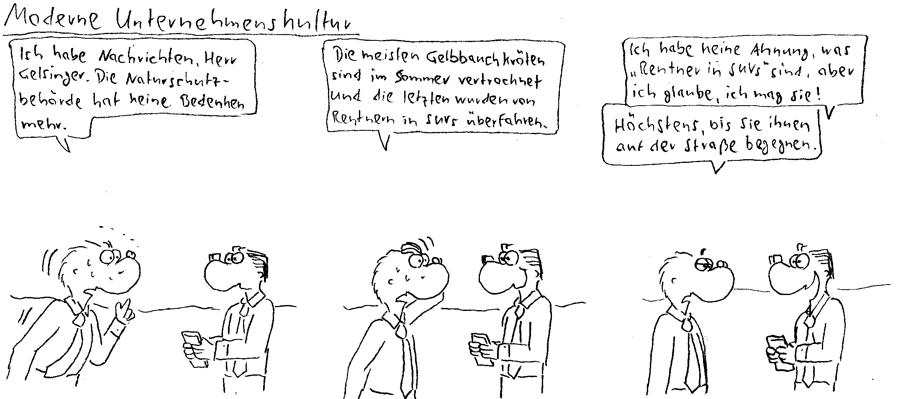 Moderne Unternehmenskultur
Ich habe Nachrichten, Herr
Gelsinger. Die Naturschutz-
behörde hat keine Bedenken
mehr.
Die meisten Gelbbauchkröten
sind im Sommer vertrocknet
und die letzten wurden von
Rentnern in SUVs überfahren.
Ich habe keine Ahnung, was
„Rentner in SUVs" sind, aber
ich glaube, ich mag sie!
Höchstens, bis sie ihnen
auf der Straße begegnen.